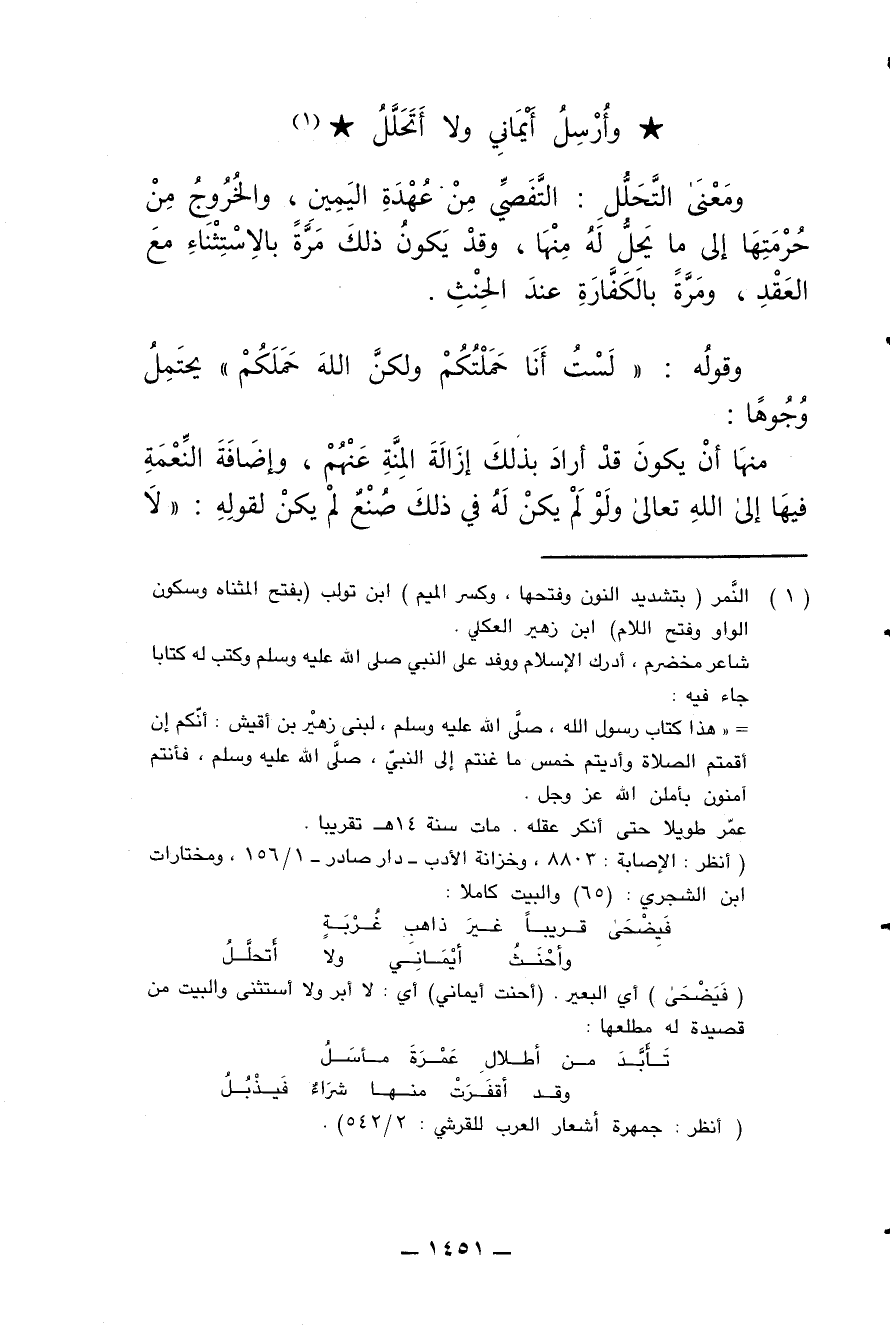 ★ وأُرْسِلُ أَيْمَاني ولا أَتَحَلَّلُ ★ (١)
ومَعْنَىٰ التَّحَلُّلِ : التَّفَصِّي مِنْ عُهْدَةِ اليَمِينِ ، والخُرُوجُ مِنْ
حُرْمَتِهَا إلى ما يَحِلُّ لَهُ مِنْهَا ، وقدْ يَكونُ ذلكَ مَرَّةً بالاِسْتِثْنَاءِ معَ
العَقْدِ ، ومَرَّةً بالَكَفَّارَةِ عندَ الحِنْثِ .
وقولُه : « لَسْتُ أَنَا حَمَلْتُكُمْ ولكنَّ اللهَ حَمَلَكُمْ » يحتَمِلُ
وُجُوهًا :
منهَا أنْ يكونَ قدْ أرادَ بذلكَ إزَالَةَ المِنَّةِ عَنْهُمْ ، وإضَافَةَ النِّعْمَةِ
فيهَا إلىٰ اللهِ تعالىٰ ولَوْ لَمْ يكنْ لَهُ في ذلكَ صُنْعٌ لمْ يكنْ لقولِهِ : « لَا
( ١ ) النَّمر ( بتشديد النون وفتحها ، وكسر الميم ) ابن تولب (بفتح المثناه وسكون
الواو وفتح اللام) ابن زهير العكلي .
شاعر مخضرم ، أدرك الإسلام ووفد على النبي صلى الله عليه وسلم وكتب له كتابا
جاء فيه :
= « هذا كتاب رسول الله ، صلَّى الله عليه وسلم ، لبنى زهيْر بن أقيش : أنّكم إن
أقمتم الصلاة وأديتم خمس ما غنتم إلى النبيّ ، صلَّى الله عليه وسلم ، فأنتم
آمنون بأملن الله عز وجل .
عمّر طويلا حتى أنكر عقله . مات سنة ١٤هـ تقريبا .
( أنظر : الإصابة : ٨٨٠٣ ، وخزانة الأدب ـ دار صادر ـ ١٥٦/١ ، ومختارات
ابن الشجري : (٦٥) والبيت كاملا :
فَيِضْحَىٰ قـريبـاً غيـرَ ذاهبِ غُـرْبَـةٍ
وأحْنَـثُ أيْمَـانِـي ولا أَتحلَّـلُ
( فَيَضْحَىٰ ) أي البعير . (أحنت أيماني) أي : لا أبر ولا أستثنى والبيت من
قصيدة له مطلعها :
تَـأبَّـدَ مـن أطـلالِ عَمْـرَةَ مـأسَـلُ
وقـد أقفَـرَتْ منـهـا شرَاءٌ فَيـذْبُـلُ
( أنظر : جمهرة أشعار العرب للقرشي : ٥٤٢/٢) .
ــ ١٤٥١ ــ